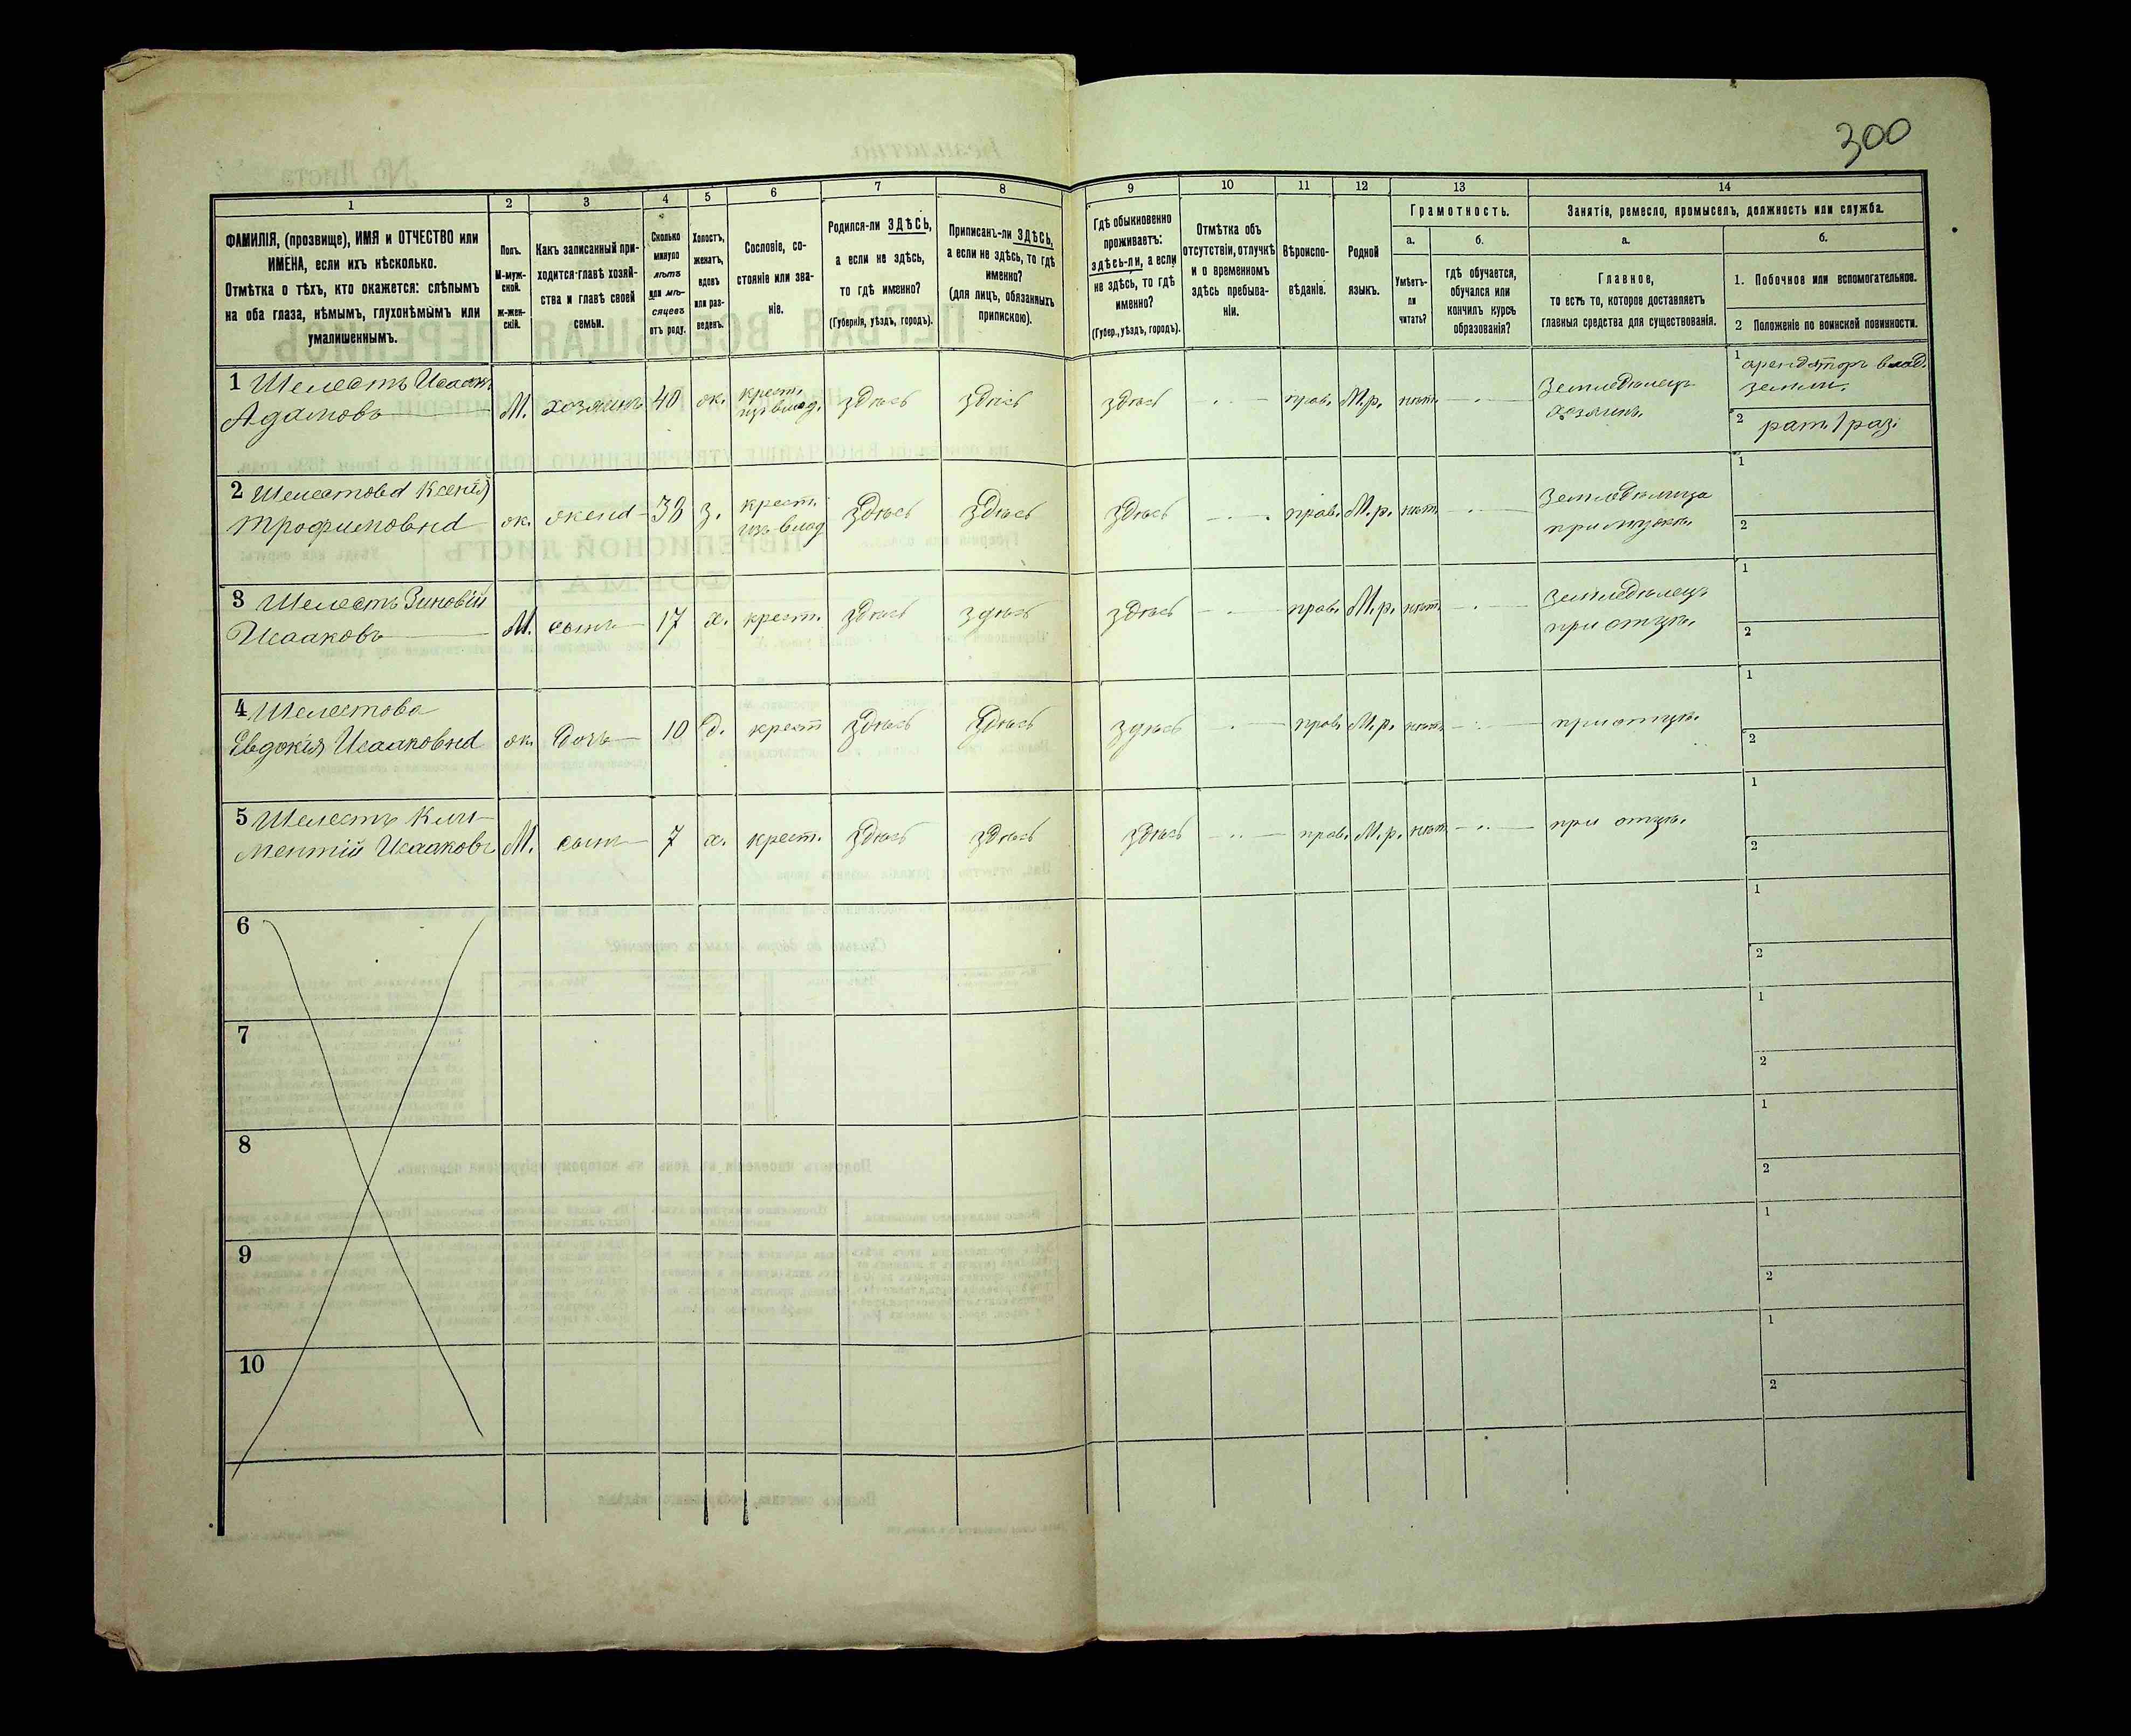 300
1
2
3
4
5
6
7
8
9
10
11
12
13
14
ФАМИЛІЯ, (прозвище), ИМЯ и ОТЧЕСТВО или
ИМЕНА, если ихъ нѣсколько.
Отмѣтка о тѣхъ, кто окажется: слѣпымъ
на оба глаза, нѣмымъ, глухонѣмымъ или
умалишеннымъ.
Полъ.
М-муж-
ской.
ж-жен-
скій.
Какъ записанный при-
ходится главѣ хозяй-
ства и главѣ своей
семьи.
Сколько
минуло
лѣтъ
или мѣ-
сяцевъ
отъ роду.
Холостъ,
женатъ,
вдовъ
или раз-
веденъ.
Сословіе, со-
стояніе или зва-
ніе.
Родился-ли ЗДѢСЬ,
а если не здѣсь,
то гдѣ именно?
(Губернія, уѣздъ, городъ).
Приписанъ-ли ЗДѢСЬ,
а если не здѣсь, то гдѣ
именно?
(для лицъ, обязанныхъ
припискою).
Гдѣ обыкновенно
проживаетъ:
здѣсь-ли, а если
не здѣсь, то гдѣ
именно?
(Губер., уѣздъ, городъ).
Отмѣтка объ
отсутствіи, отлучкѣ
и о временномъ
здѣсь пребыва-
ніи.
Вѣроиспо-
вѣданіе.
Родной
языкъ.
Грамотность.
а.
Умѣетъ-
ли
читать?
б.
гдѣ обучается,
обучался или
кончилъ курсъ
образованія?
Занятіе, ремесло, промыселъ, должность или служба.
а.
Главное,
то есть то, которое доставляетъ
главныя средства для существованія.
б.
1. Побочное или вспомогательное.
2 Положеніе по воинской повинности.
1 Шелестъ Исаакъ
Адамовъ
М. хозяинъ 40 ж. крест. изъ влад. здѣсь здѣсь здѣсь прав. М.р. нѣтъ
Земледѣлецъ
хозяинъ.
1 арендаторъ влад.
земли.
2 рат. 1 раз.
2 Шелестова Ксенія
Трофимовна
ж. жена 38 з. крест. изъ влад. здѣсь здѣсь здѣсь прав. М.р. нѣтъ
Земледѣлица
при мужѣ.
1
2
3 Шелестъ Зиновій
Исааковъ
М. сынъ 17 х. крест. здѣсь здѣсь здѣсь прав. М.р. нѣтъ
Земледѣлецъ
при отцѣ.
1
2
4 Шелестова
Евдокія Исааковна
ж. дочь 10 д. крест здѣсь здѣсь здѣсь прав. М.р. нѣтъ при отцѣ.
1
2
5 Шелестъ Кли-
ментій Исааковъ
М. сынъ 7 х. крест. здѣсь здѣсь здѣсь прав. М.р. нѣтъ при отцѣ.
1
2
6
1
2
7
1
2
8
1
2
9
1
2
10
1
2